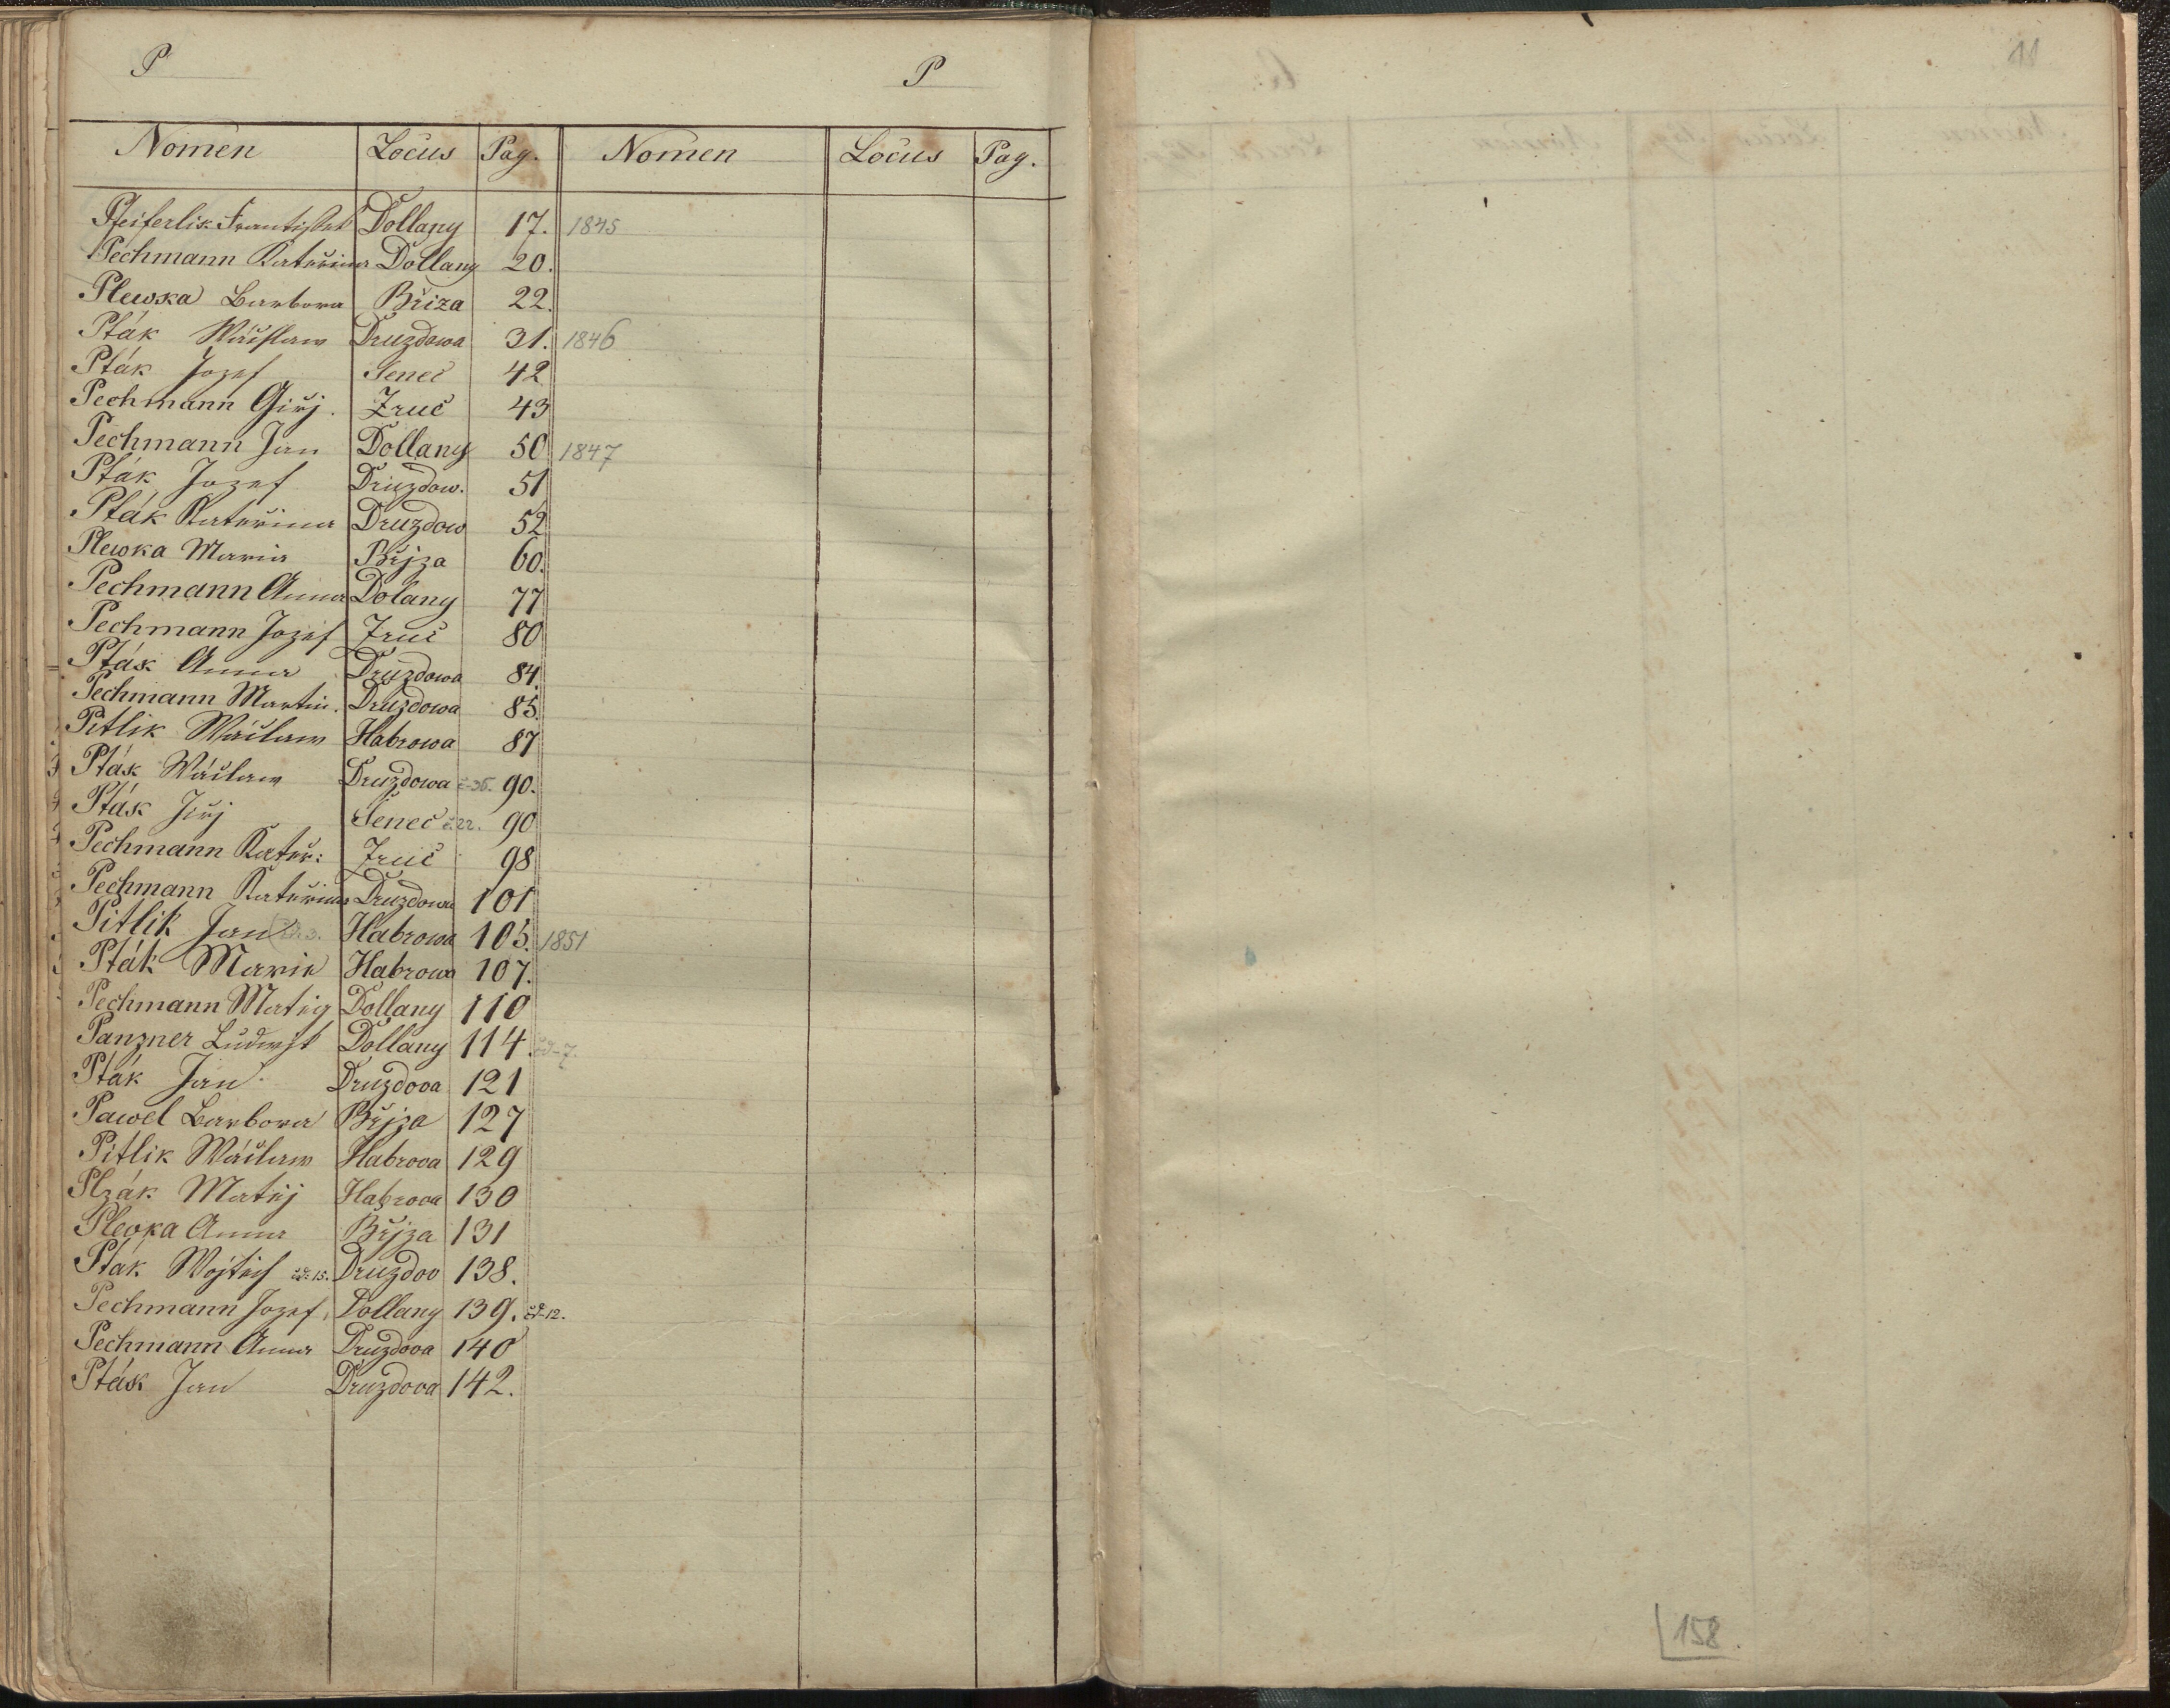 P P
Nomen Locus Pag. Nomen Locus Pag.
Pfeiferlik František Dollany 17. 1845
Pechmann Kateřina Dollany 20.
Plewka Barbora Břiza 22.
Pták Wáclaw Druzdowa 31. 1846
Pták Jozef Senec 42
Pechmann Giřj. Zruč 43
Pechmann Jan Dollany 50 1847
Pták Jozef Druzdow. 51
Pták Kateřina Druzdow 52
Plewka Maria Břjza 60.
Pechmann Anna Dolany 77
Pechmann Jozef Zruč 80
Pták Anna Druzdowa 84.
Pechmann Martin. Druzdowa 85.
Pitlik Wáclaw Habrowa 87
Pták Wáclaw Druzdowa č. 36. 90.
Pták Jiřj Senec č. 22. 90
Pechmann Kateř: Zruč 98
Pechmann Kateřina Druzdowa 101
Pitlik Jan Habrowa 105. 1851
Pták Marie Habrowa 107.
Pechmann Matěg Dollany 110
Panzner Ludwjk Dollany 114. čd-7.
Pták Jan. Druzdova 121
Pawel Barbora Břjza 127
Pitlik Wáclaw Habrova 129
Plzák Matěj Habrova 130
Plevka Anna Břjza 131
Pták Wojtěch čd. 15. Druzdov 138.
Pechmann Jozef, Dollany 139. čd-12.
Pechmann Anna Druzdova 140
Pták Jan Druzdova 142.
11
158.